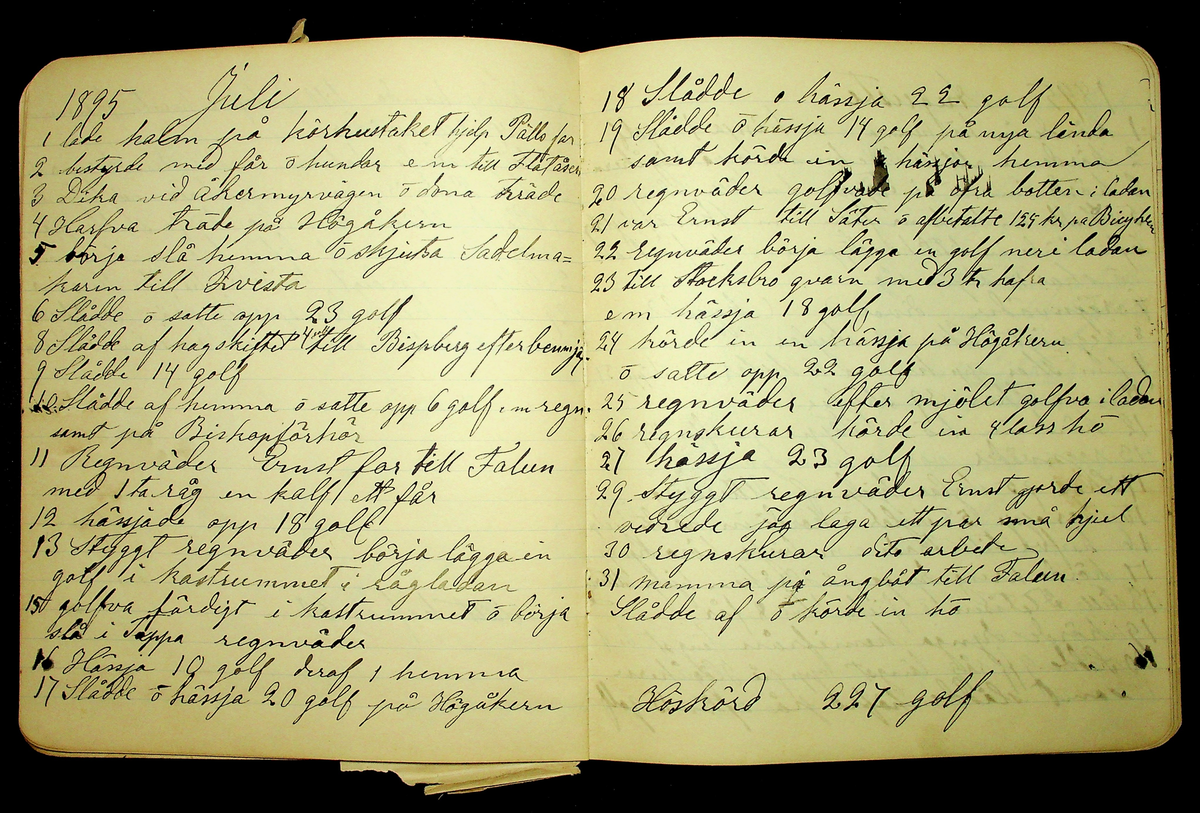 1895 Juli
1 lade halm på körhustaket hjelp Pålls far
2 bestyrde med får ō hundar e m till
3 Dika vid Åkermyrvägen ō dona träde
4 Harfva träde på Högåkern
5 börja slå hemma ō skjutsa Sadelma=
karen till Kvista
6 Slådde ō satte opp 23 golf
8 Slådde af hagskiftet till Bispberg efter benmjöl
9 Slådde 14 golf
10 Slådde af hemma ō satte opp 6 golf e m regn
samt på Biskopförhör
11 Regnväder Ernst for till Falun
med 1 ta råg en kalf ett får
12 hässjade opp 18 golf
13 Styggt regnväder börja lägga in
golf i kastrummet i rågladan
15 golfva färdigt i kastrummet ō börja
slå i Täppa regnväder
16 Hässja 10 golf deraf 1 hemma
17 Slådde ō hässja 20 golf på Högåkern
18 Slådde o hässja 22 golf
19 Slådde ō hässja 14 golf på nya linda
samt körde in hässjor hemma
20 regnväder golfvade på öfra botten i ladan
21 var Ernst till Säter ō afbetalte 125 kr på Bicykeln
22 regnväder börja lägga en golf neri ladan
23 till Stocksbro qvarn med 3 tr hafra
e m hässja 18 golf
24 körde in en hässja på Högåkern
ō satte opp 22 golf
25 regnväder efter mjölet golfva i ladan
26 regnskurar körde in 4 lass hö
27 hässja 23 golf
29 styggt regnväder Ernst gjorde ett
vedrede jag laga ett par små hjul
30 regnskurar dito arbete
31 mamma på ångbåt till Falun
Slådde af ō körde in hö
Höskörd 227 golf